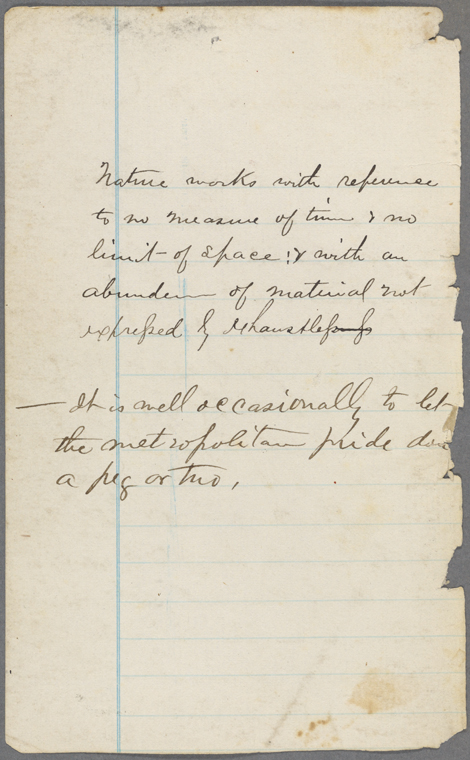 Nature works with reference
to no measure of time & no
limit of space : & with an
abundan of material not
expressed by exhaustless
— It is well occasionally to let
the metropolitan pride dow
a peg or two,